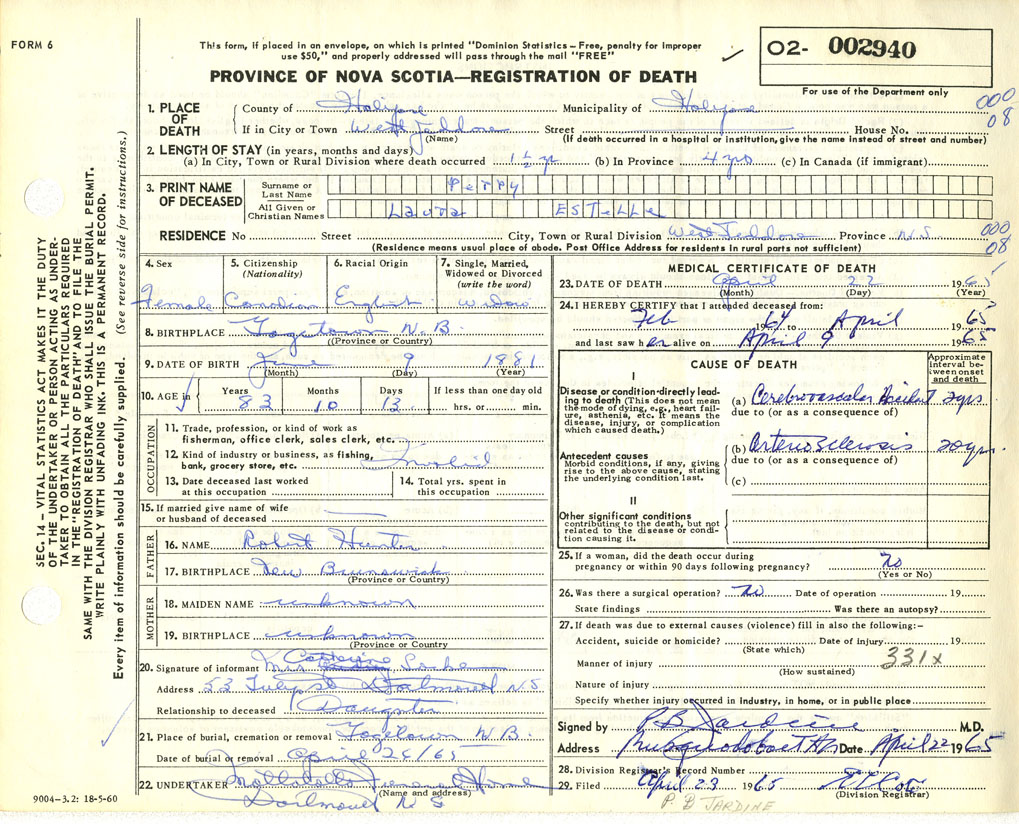 FORM 6
This form, if placed in an envelope, on which is printed "Dominion Statistics – Free, penalty for improper
use $50," and properly addressed will pass through the mail "FREE"
O2- 002940
For use of the Department only
PROVINCE OF NOVA SCOTIA—REGISTRATION OF DEATH
000
08
1. PLACE OF DEATH
County of Halifax Municipality of Halifax
If in City or Town West Jeddore Street House No.
(Name) (If death occurred in a hospital or institution, give the name instead of street and number)
2. LENGTH OF STAY (in years, months and days)
(a) In City, Town or Rural Division where death occurred 1 1/2 yr (b) In Province 4 yrs (c) In Canada (if immigrant)
3. PRINT NAME OF DECEASED
Surname or Last Name Perry
All Given or Christian Names Laura ESTELLE
RESIDENCE No Street City, Town or Rural Division West Jeddore Province N.S.
000
08
(Residence means usual place of abode. Post Office Address for residents in rural parts not sufficient)
4. Sex 5. Citizenship (Nationality) 6. Racial Origin 7. Single, Married, Widowed or Divorced (write the word)
Female Canadian English Widow
8. BIRTHPLACE N.B.
(Province or Country)
9. DATE OF BIRTH June 9 1881
(Month) (Day) (Year)
10. AGE in Years Months Days If less than one day old
83 10 13 hrs. or min.
OCCUPATION
11. Trade, profession, or kind of work as
fisherman, office clerk, sales clerk, etc.
12. Kind of industry or business, as fishing,
bank, grocery store, etc. Invalid
13. Date deceased last worked
at this occupation
14. Total yrs. spent in
this occupation
15. If married give name of wife
or husband of deceased
FATHER
16. NAME Robert Hunter
17. BIRTHPLACE New Brunswick
(Province or Country)
MOTHER
18. MAIDEN NAME unknown
19. BIRTHPLACE unknown
(Province or Country
20. Signature of informant Mrs Catherine
Address 53 Tulip St Dartmouth N S
Relationship to deceased Daughter
21. Place of burial, cremation or removal N.B.
Date of burial or removal April 24/65
22. UNDERTAKER Funeral Home
(Name and address)
Dartmouth N S
9004-3.2: 18-5-60
MEDICAL CERTIFICATE OF DEATH
23. DATE OF DEATH April 22 1965
(Month) (Day) (Year)
24. I HEREBY CERTIFY that I attended deceased from:
Feb 1964 to April 1965
and last saw her alive on April 9 1965
CAUSE OF DEATH
Approximate interval between onset and death
I
Disease or condition directly leading to death (This does not mean the mode of dying, e.g., heart failure, asthenia, etc. It means the disease, injury, or complication which caused death.)
(a) Cerebrovascular Accident 2yrs
due to (or as a consequence of)
Antecedent causes
Morbid conditions, if any, giving rise to the above cause, stating the underlying condition last.
(b) Arteriosclerosis 20yrs
due to (or as a consequence of)
(c)
II
Other significant conditions
contributing to the death, but not related to the disease or condition causing it.
25. If a woman, did the death occur during
pregnancy or within 90 days following pregnancy? No
(Yes or No)
26. Was there a surgical operation? No Date of operation 19
State findings Was there an autopsy?
27. If death was due to external causes (violence) fill in also the following:–
Accident, suicide or homicide? Date of injury 19
(State which)
331x
Manner of injury
(How sustained)
Nature of injury
Specify whether injury occurred in industry, in home, or in public place
Signed by P.B. Jardine M.D.
Address Musquodoboit Hbr Date April 22 1965
28. Division Registrar's Record Number
29. Filed April 23 1965
(Division Registrar)
P B JARDINE
SEC. 14 – VITAL STATISTICS ACT MAKES IT THE DUTY
OF THE UNDERTAKER OR PERSON ACTING AS UNDERTAKER
TO OBTAIN ALL THE PARTICULARS REQUIRED
IN THE "REGISTRATION OF DEATH" AND TO FILE THE
SAME WITH THE DIVISION REGISTRAR WHO SHALL ISSUE THE BURIAL PERMIT.
WRITE PLAINLY WITH UNFADING INK. THIS IS A PERMANENT RECORD.
Every item of information should be carefully supplied. (See reverse side for instructions.)